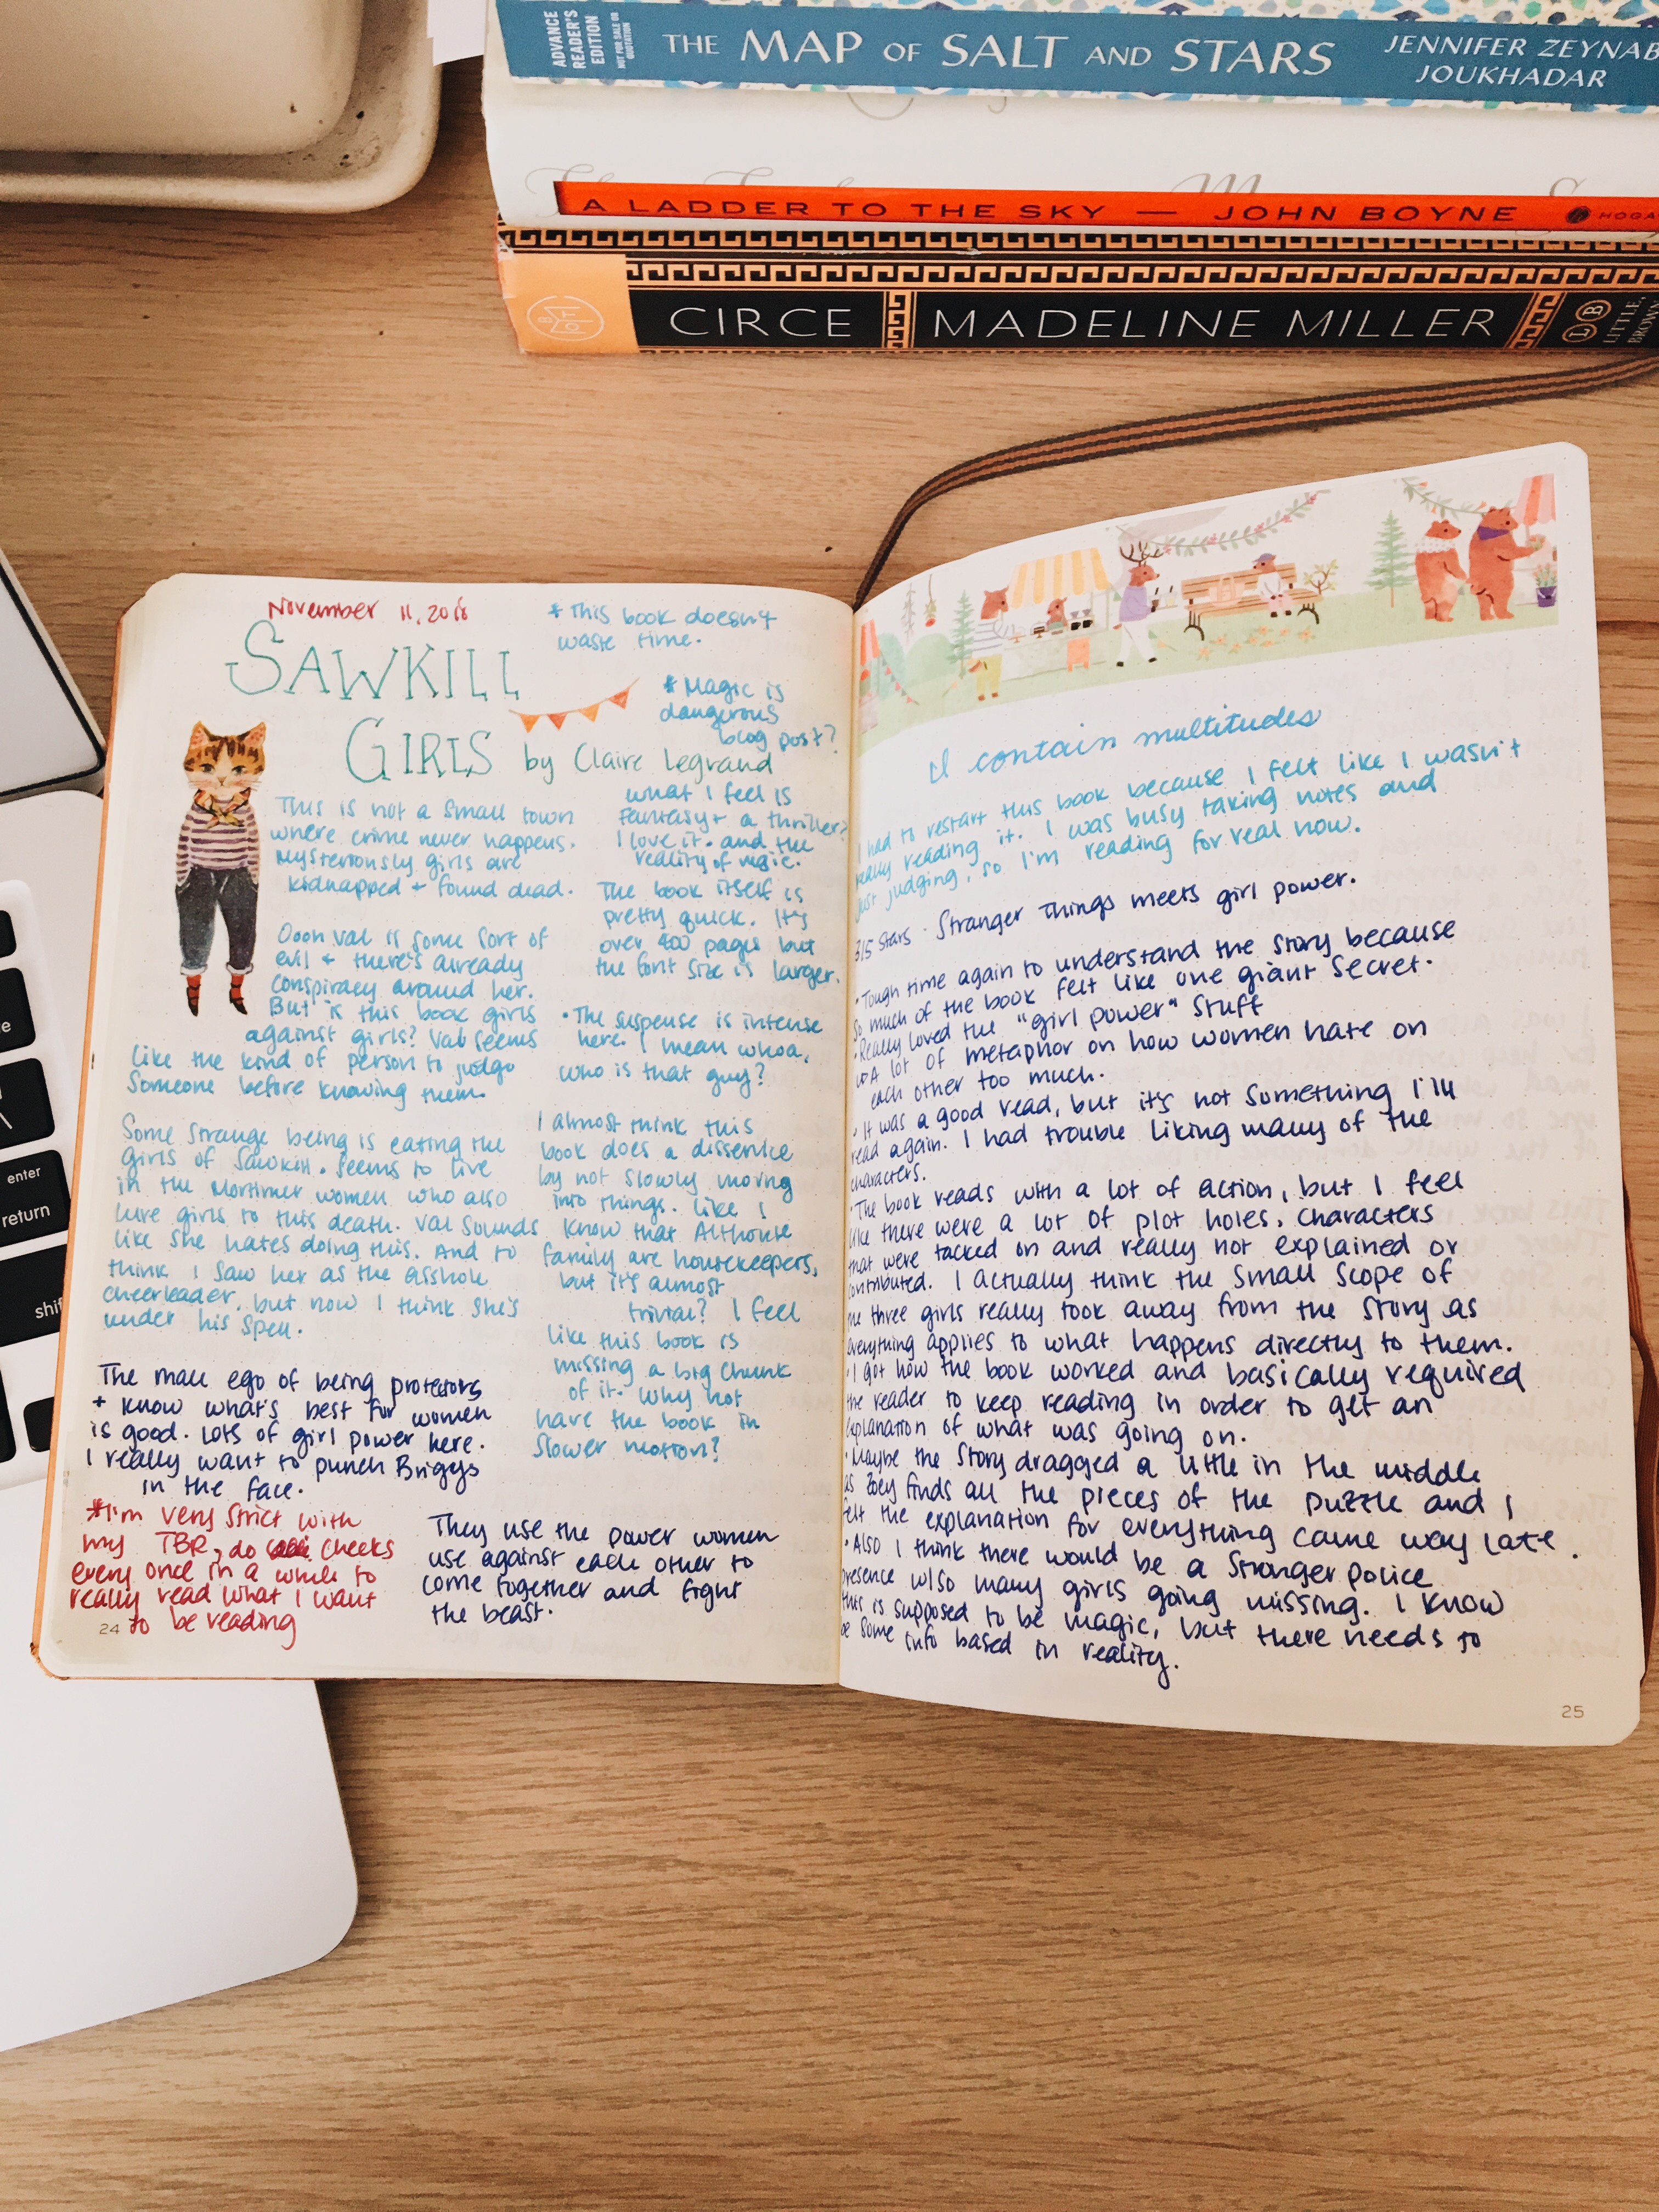 ADVANCE
READER'S
EDITION
NOT FOR SALE OR
QUOTATION
THE MAP OF SALT AND STARS
JENNIFER ZEYNAB
JOUKHADAR
A LADDER TO THE SKY — JOHN BOYNE
HOGA
CIRCE
MADELINE MILLER
LB
LITTLE,
BROWN
enter
return
shif
November 11, 2018
SAWKILL
GIRLS by Claire Legrand
* This book doesn't
waste time.
* Magic is
dangerous
blog post?
This is not a small town
where crime never happens.
Mysteriously girls are
kidnapped + found dead.
Oooh Val is some sort of
evil + there's already
conspiracy around her.
But is this book girls
against girls? Val seems
like the kind of person to judge
someone before knowing them.
Some strange being is eating the
girls of Sawkill. Seems to live
in the Mortimer women who also
lure girls to this death. Val sounds
like she hates doing this. And to
think I saw her as the asshole
cheerleader, but now I think she's
under his spell.
The male ego of being protectors
+ know what's best for women
is good. Lots of girl power here.
I really want to punch Briggs
in the face.
*I'm very strict with
my TBR, do checks
every once in a while to
really read what I want
to be reading
24
What I feel is
fantasy + a thriller?
I love it. and the
reality of magic.
The book itself is
pretty quick. It's
over 400 pages but
the font size is larger.
• The suspense is intense
here. I mean whoa,
who is that guy?
I almost think this
book does a disservice
by not slowly moving
into things. Like I
know that Althouse
family are housekeepers,
but it's almost
trivial? I feel
like this book is
missing a big chunk
of it. Why not
have the book in
slower motion?
They use the power women
use against each other to
come together and fight
the beast.
I contain multitudes
I had to restart this book because I felt like I wasn't
really reading it. I was busy taking notes and
just judging, so I'm reading for real now.
3/5 stars · Stranger Things meets girl power.
• Tough time again to understand the story because
so much of the book felt like one giant secret.
• Really loved the "girl power" stuff
A lot of metaphor on how women hate on
each other too much.
• It was a good read, but it's not something I'll
read again. I had trouble liking many of the
characters.
• The book reads with a lot of action, but I feel
like there were a lot of plot holes. Characters
that were tacked on and really not explained or
contributed. I actually think the small scope of
the three girls really took away from the story as
everything applies to what happens directly to them.
• I got how the book worked and basically required
the reader to keep reading in order to get an
explanation of what was going on.
• Maybe the story dragged a little in the middle
as Zoey finds all the pieces of the puzzle and I
felt the explanation for everything came way late.
• Also I think there would be a stronger police
presence w/so many girls going missing. I know
this is supposed to be magic, but there needs to
be some info based in reality.
25